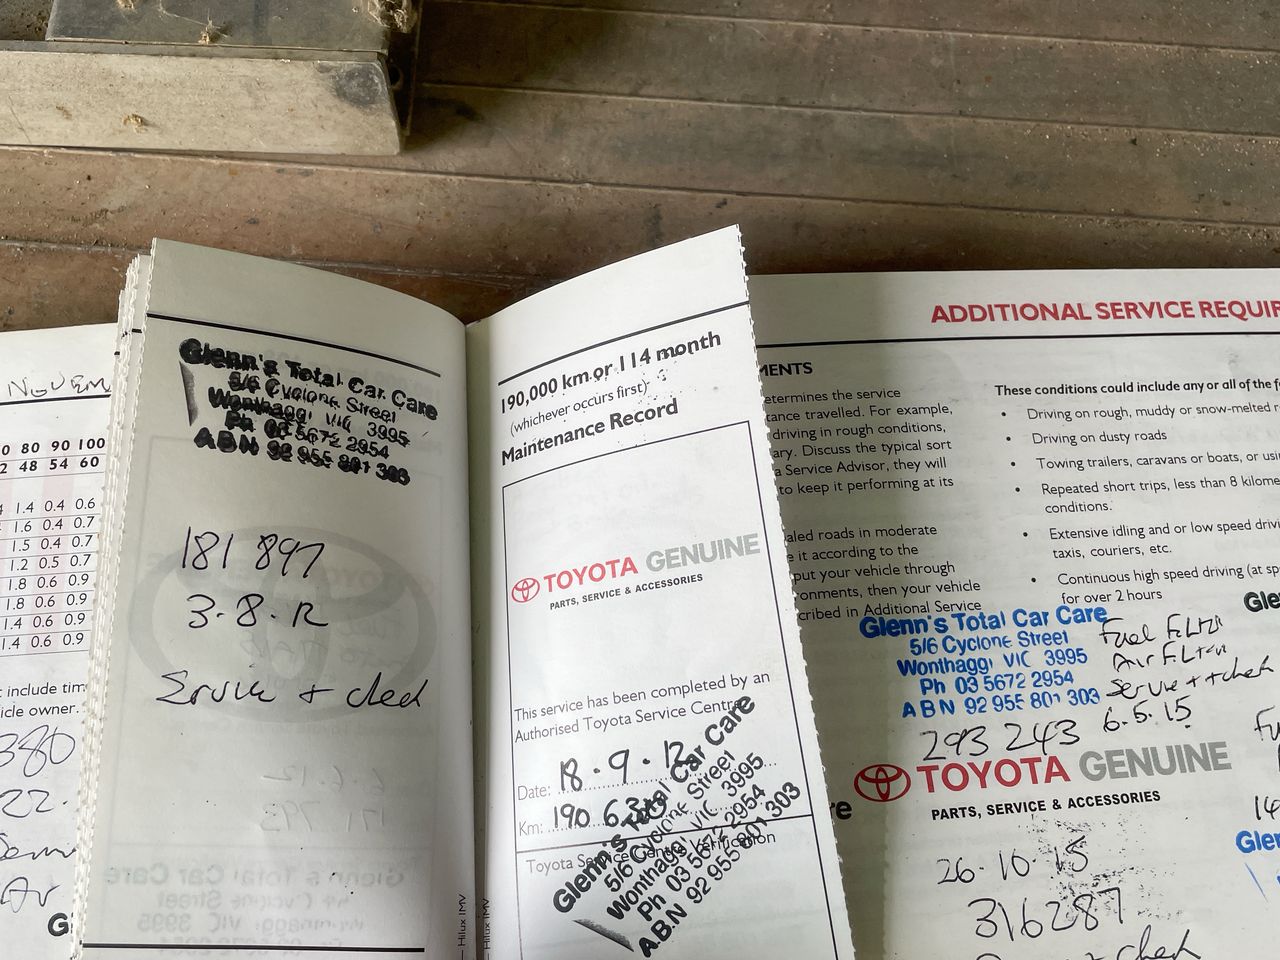 NOVEM
0 80 90 100
2 48 54 60
1.4 0.4 0.6
1.6 0.4 0.7
1.5 0.4 0.7
1.2 0.5 0.7
1.8 0.6 0.9
1.8 0.6 0.9
1.4 0.6 0.9
1.4 0.6 0.9
include tim
icle owner.
380
22.
Glenn's Total Car Care
5/6 Cyclone Street
Wonthaggi VIC 3995
Ph 03 5672 2954
ABN 92 955 801 303
181 897
3.8.12
Service + check
190,000 km or 114 month
(whichever occurs first)
Maintenance Record
TOYOTA GENUINE
PARTS, SERVICE & ACCESSORIES
This service has been completed by an
Authorised Toyota Service Centre
Date: 18.9.12
Km: 190 630
Toyota Service Centre Verification
Glenn's Total Car Care
5/6 Cyclone Street
Wonthaggi VIC 3995
Ph 03 5672 2954
ABN 92 955 801 303
Hilux IMV
Hilux IMV
ADDITIONAL SERVICE REQUIR
MENTS
etermines the service
tance travelled. For example,
driving in rough conditions,
ary. Discuss the typical sort
a Service Advisor, they will
to keep it performing at its
aled roads in moderate
e it according to the
put your vehicle through
onments, then your vehicle
cribed in Additional Service
These conditions could include any or all of the f
• Driving on rough, muddy or snow-melted r
• Driving on dusty roads
• Towing trailers, caravans or boats, or usi
• Repeated short trips, less than 8 kilome
conditions.
• Extensive idling and or low speed drivi
taxis, couriers, etc.
• Continuous high speed driving (at sp
for over 2 hours
Glenn's Total Car Care
5/6 Cyclone Street
Wonthaggi VIC 3995
Ph 03 5672 2954
ABN 92 955 801 303
Fuel Filter
Air Filter
Service + check
293 243 6.5.15
TOYOTA GENUINE
PARTS, SERVICE & ACCESSORIES
26.10.15
316287
check
Gle
Gle